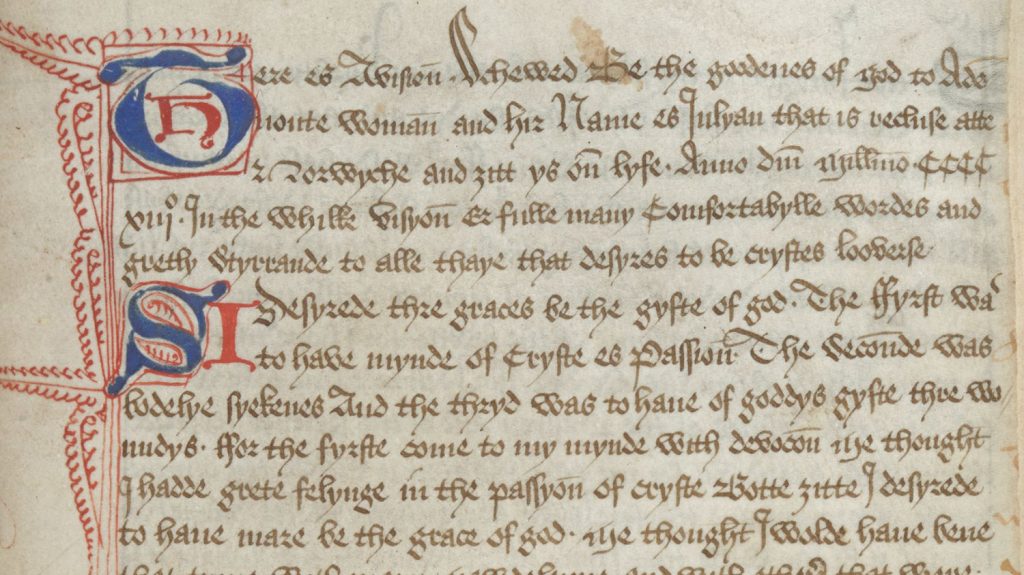 Here es Avisioun Schewed Be the goodenes of god to Ade
uoute woman and hir Name es Julyan that is recluse atte
Norwyche and ȝitt ys oun lyfe. Anno dm̄ millmo CCCC
xiijº. In the whilke visyoun Er fulle many Comfortabylle wordes and
gretly styrrande to alle thaye that desyres to be crystes looverse
I Desyrede thre graces be the gyfte of god. The ffyrst was
to have mynde of Cryste es Passioun. The secounde was
bodelye syeknes And the thryd was to haue of goddys gyfte thre wo
undys. ffor the fyrste come to my mynde with devocoun me thought
I hadde grete felynge in the passyoun of cryste Botte ȝitte I desyrede
to haue mare be the grace of god. me thought I wolde haue bene
that tyme with